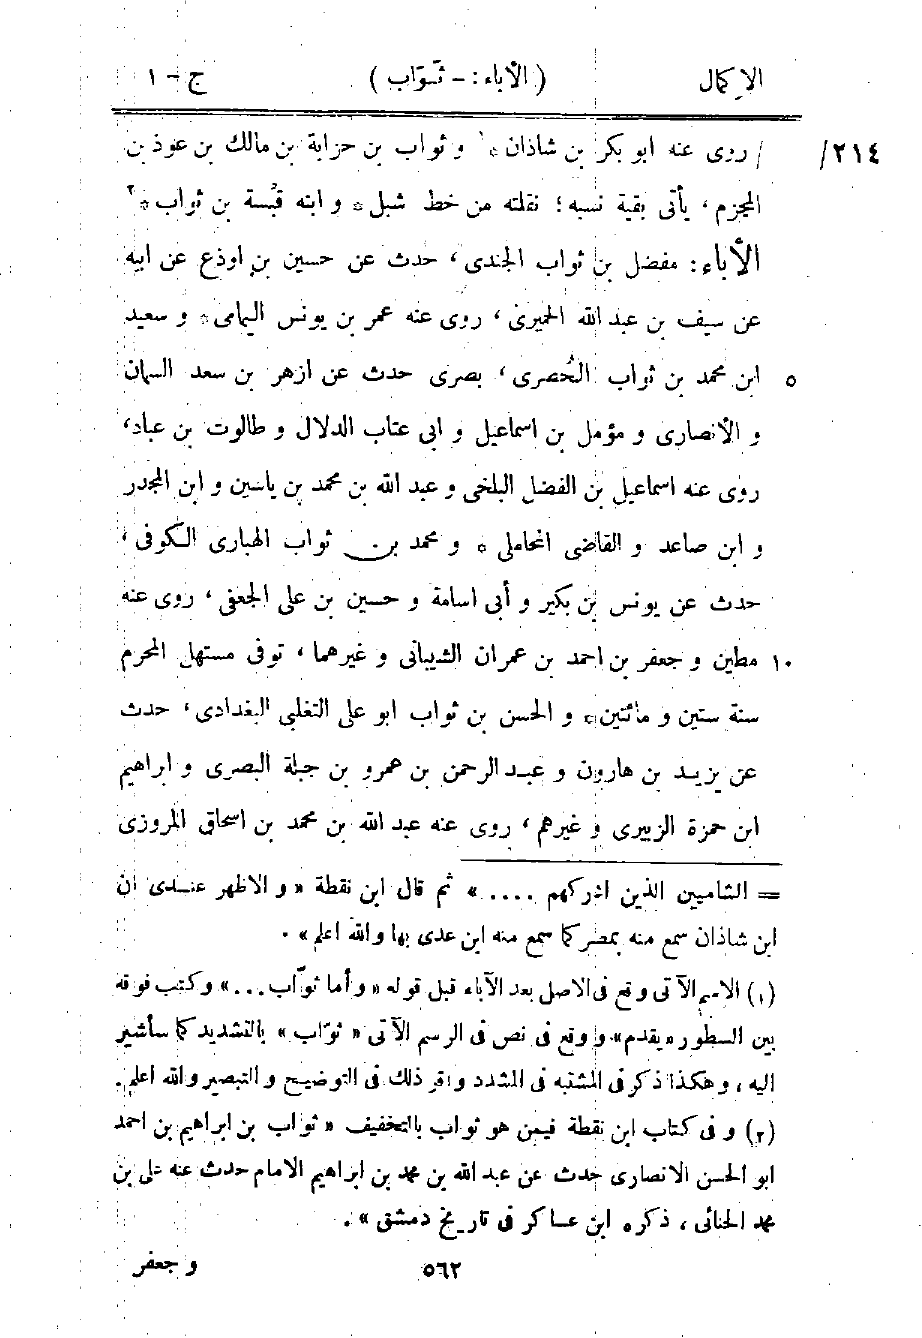 الإكمال (الأباء: - ثَوّاب) ج - ١
٢١٤/ / روى عنه ابو بكر بن شاذان * ١ و ثواب بن حزابة بن مالك بن عوذ بن
المجزم ، يأتى بقية نسبه ؛ نقلته من خط شبل * و ابنه قُبسة بن ثواب * ٢
الأباء : مفضل بن ثواب الجندى ، حدث عن حسين بن اوذع عن ابيه
عن سيف بن عبد الله الحميرى ، روى عنه عمر بن يونس اليمامى * و سعيد
٥ ابن محمد بن ثواب الحُصرى ، بصرى حدث عن ازهر بن سعد السمان
و الأنصارى و مؤمل بن اسماعيل و ابى عتاب الدلال و طالوت بن عباد ،
روى عنه اسماعيل بن الفضل البلخى و عبد الله بن محمد بن ياسين و ابن المجدر
و ابن صاعد و القاضى المحاملى * و محمد بن ثواب الهبارى الكوفى ،
حدث عن يونس بن بكير و أبى اسامة و حسين بن على الجعفى ، روى عنه
١٠ مطين و جعفر بن احمد بن عمران الشيبانى و غيرهما ، توفى مستهل المحرم
سنة ستين و مائتين * و الحسن بن ثواب ابو على التغلبى البغدادى ، حدث
عن يزيد بن هارون و عبد الرحمن بن عمرو بن جبلة البصرى و ابراهيم
ابن حمزة الزبيرى و غيرهم ، روى عنه عبد الله بن محمد بن اسحاق المروزى
= الشاميين الذين ادركهم .... » ثم قال ابن نقطة « و الاظهر عندى ان
ابن شاذان سمع منه بمصر كما سمع منه ابن عدى بها والله اعلم » .
(١) الاسم الآتى وقع فى الاصل بعد الآباء قبل قوله « وأما ثوّاب ... » وكتب فوقه
بين السطور « يقدم » و وقع فى نص فى الرسم الآتى « ثوّاب » بالتشديد كما سأشير
اليه ، وهكذا ذكر فى المشتبه فى المشدد واقر ذلك فى التوضيح و التبصير والله اعلم .
(٢) و فى كتاب ابن نقطة فيمن هو ثواب بالتخفيف « ثواب بن ابراهيم بن احمد
ابو الحسن الانصارى حدث عن عبد الله بن محمد بن ابراهيم الامام حدث عنه على بن
محمد الحنائى ، ذكره ابن عساكر فى تاريخ دمشق » .
٥٦٢ و جعفر